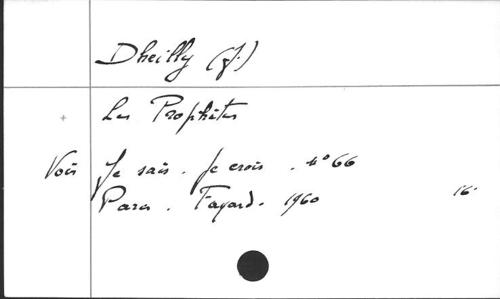 Dheilly (J.)
Les Prophètes
Voir Je sais. Je crois. n° 66
Paris. Fayard. 1960 16.